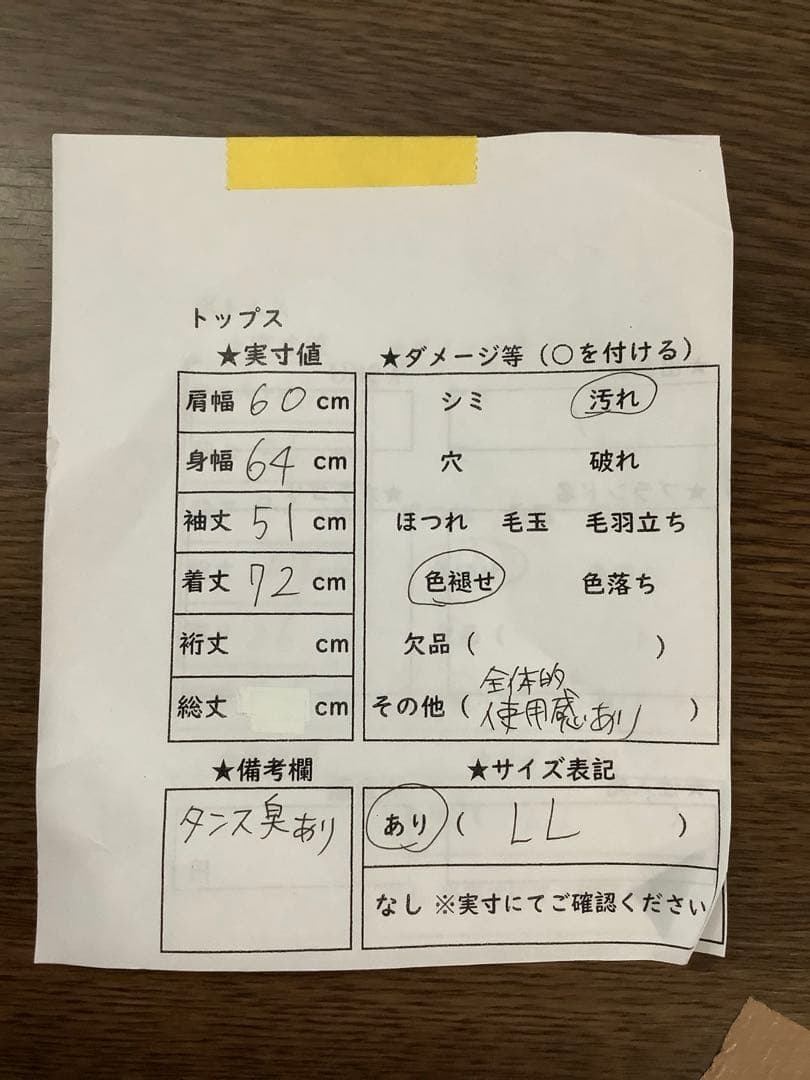 トップス
★実寸値
肩幅 60 cm
身幅 64 cm
袖丈 51 cm
着丈 72 cm
裄丈 cm
総丈 cm
★ダメージ等(○を付ける)
シミ 汚れ
穴 破れ
ほつれ 毛玉 毛羽立ち
色褪せ 色落ち
欠品( )
その他(全体的
使用感あり)
★備考欄
タンス臭あり
★サイズ表記
あり( LL )
なし ※実寸にてご確認ください